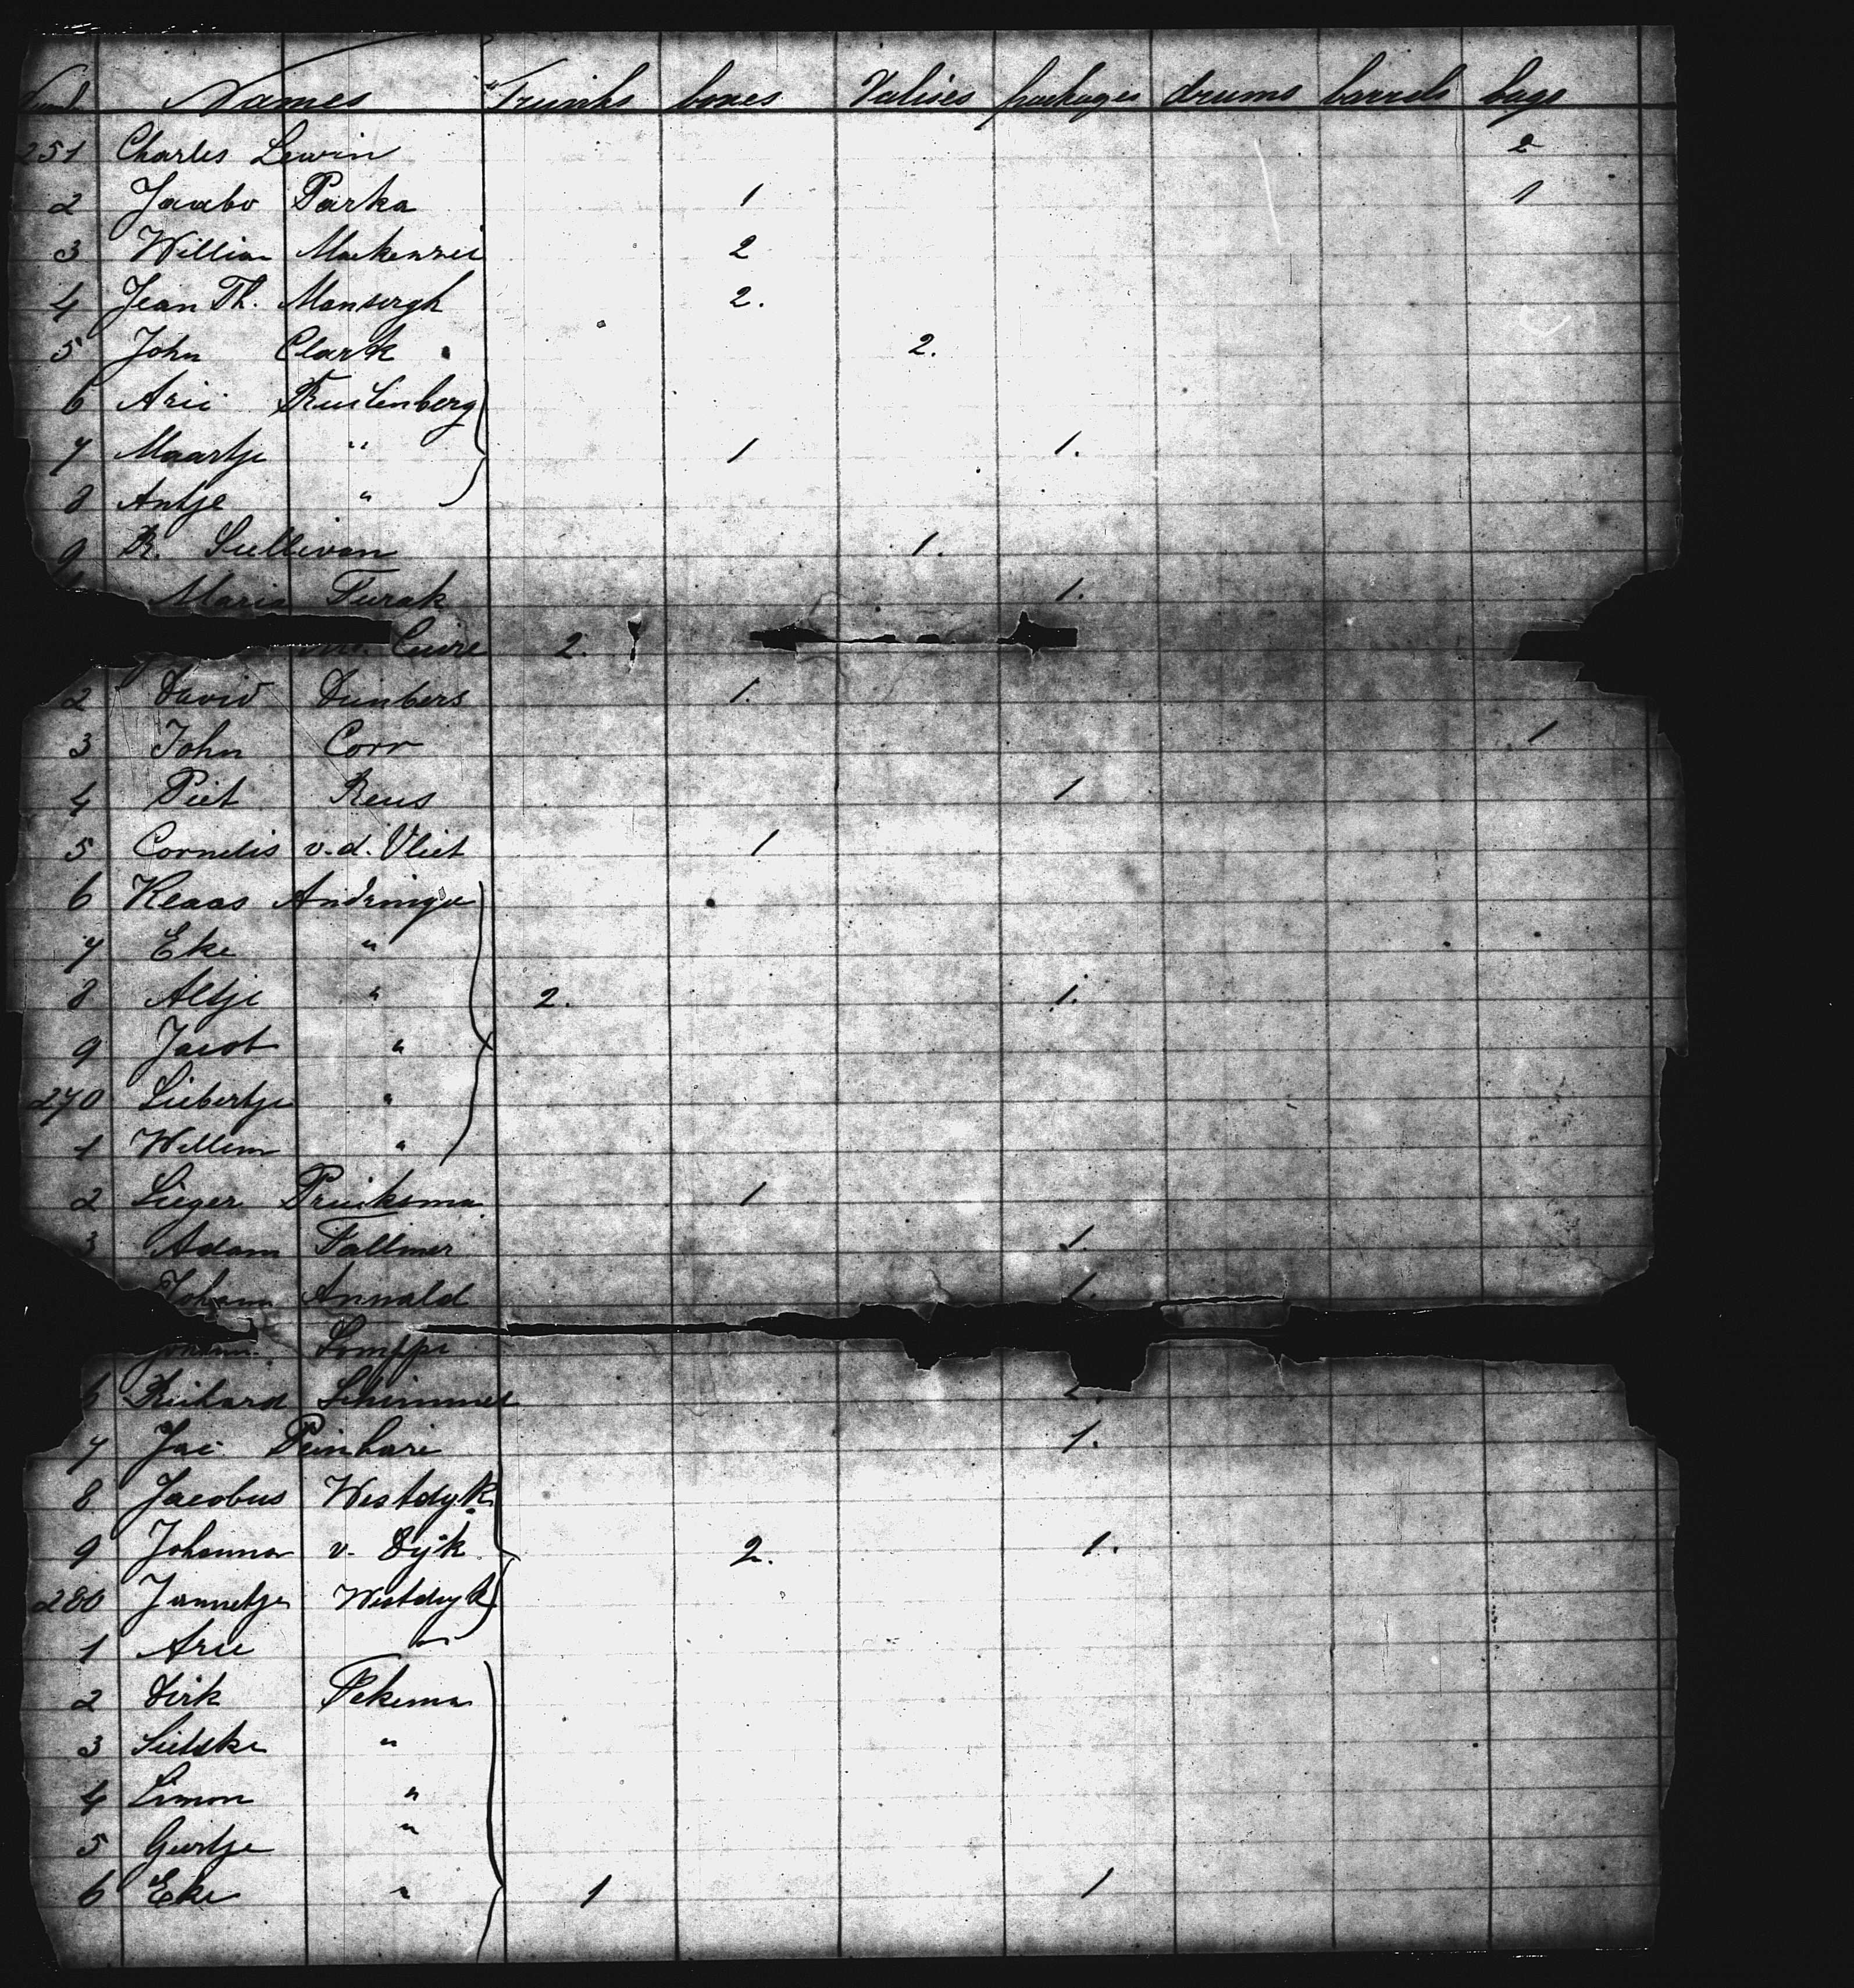 Names Trunks boxes Valises packages drums barrels bags
251 Charles Lewin 2
2 Jaabo Parka 1 1
3 William Mackenzei 2
4 Jean Th. Mansergh 2.
5 John Clark 2.
6 Arie Ruilenberg
7 Maartje " 1 1.
8 Antje "
9 R. Sullivan 1.
Maria Turak 1.
Cuire 2.
2 David Dunbers 1.
3 John Corr 1
4 Piet Reus 1
5 Cornelis v.d. Vliet 1
6 Klaas Andringa
7 Eke "
8 Altje " 2. 1.
9 Jacob "
270 Liebertje "
1 Willem "
2 Sieger Pruiksma 1
3 Adam Fallmer 1.
Johann Annald 1.
Somppi
6 Richard Schimmel 2.
7 Jac 1.
8 Jacobus Westdyk
9 Johanna v. Dijk 2. 1.
280 Jannetje Westdyk
1 Arie "
2 Dirk Fekema
3 Sietske "
4 Simon "
5 Geertje "
6 Eke " 1 1